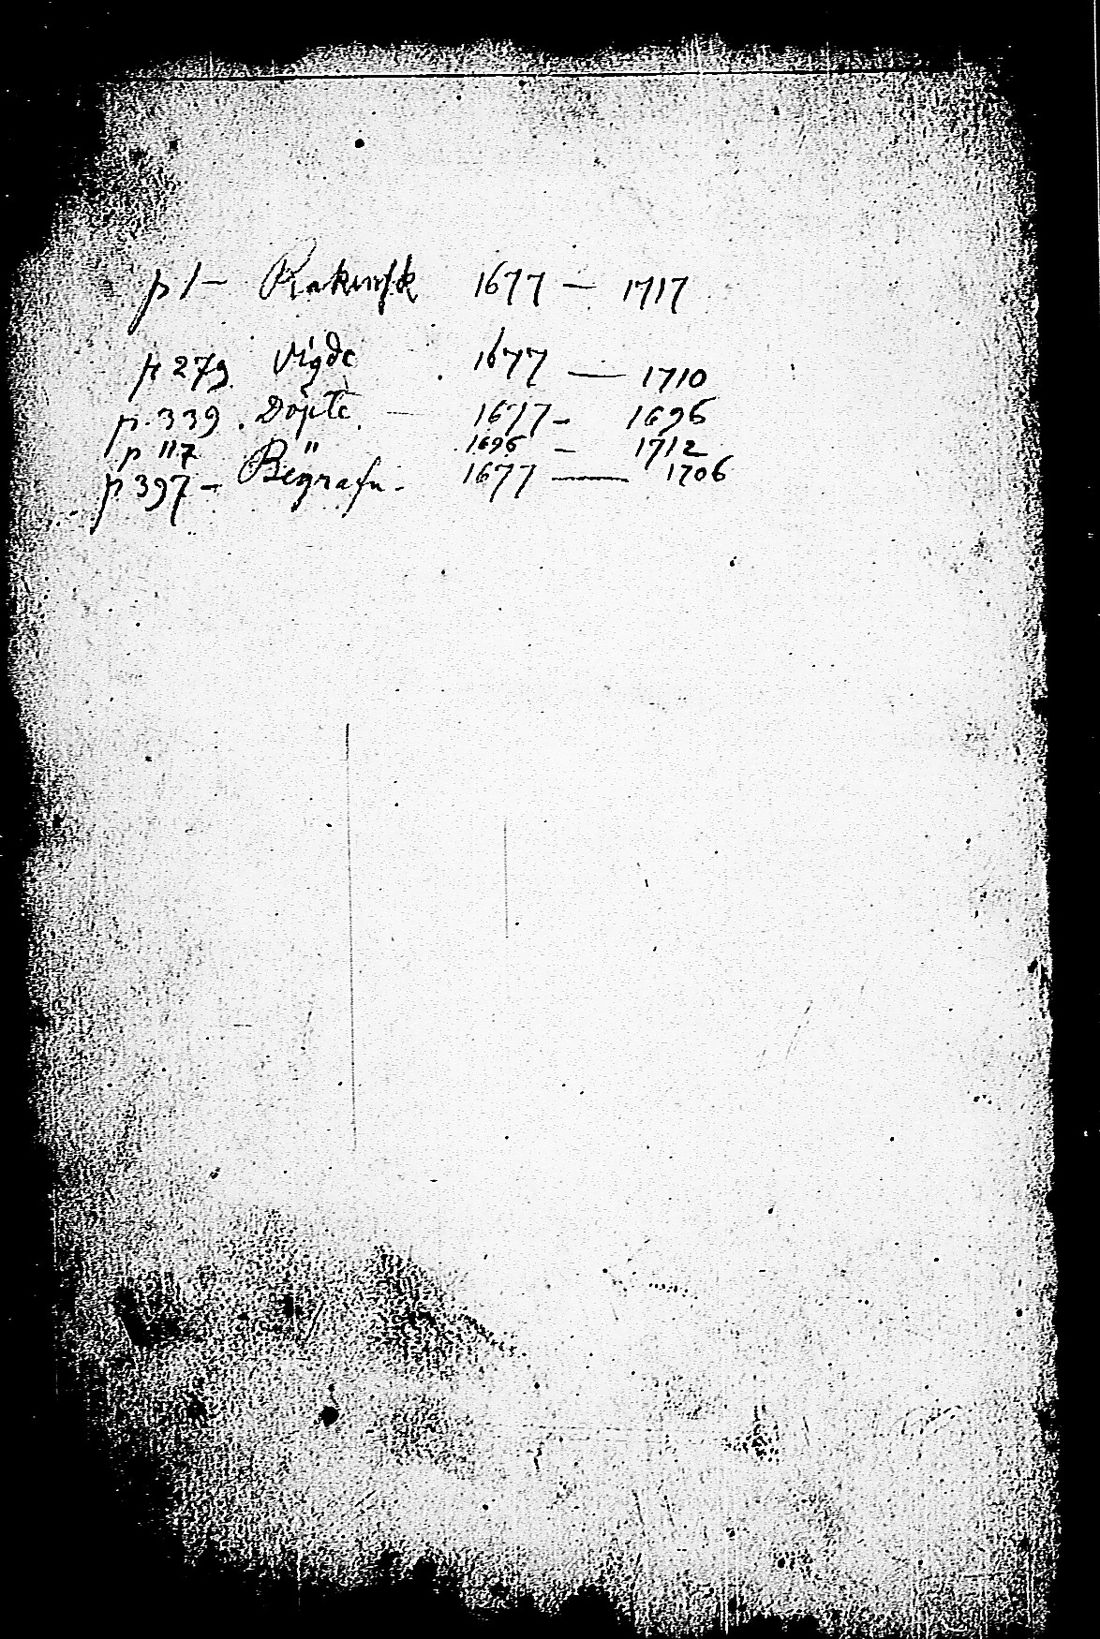 p 1 – Räkensk 1677 – 1717
p 279 Vigde 1677 — 1710
p. 339. Döpte. — 1677 – 1696
p 117 " 1696 – 1712
p 397 – Begrafn. 1677 — 1706